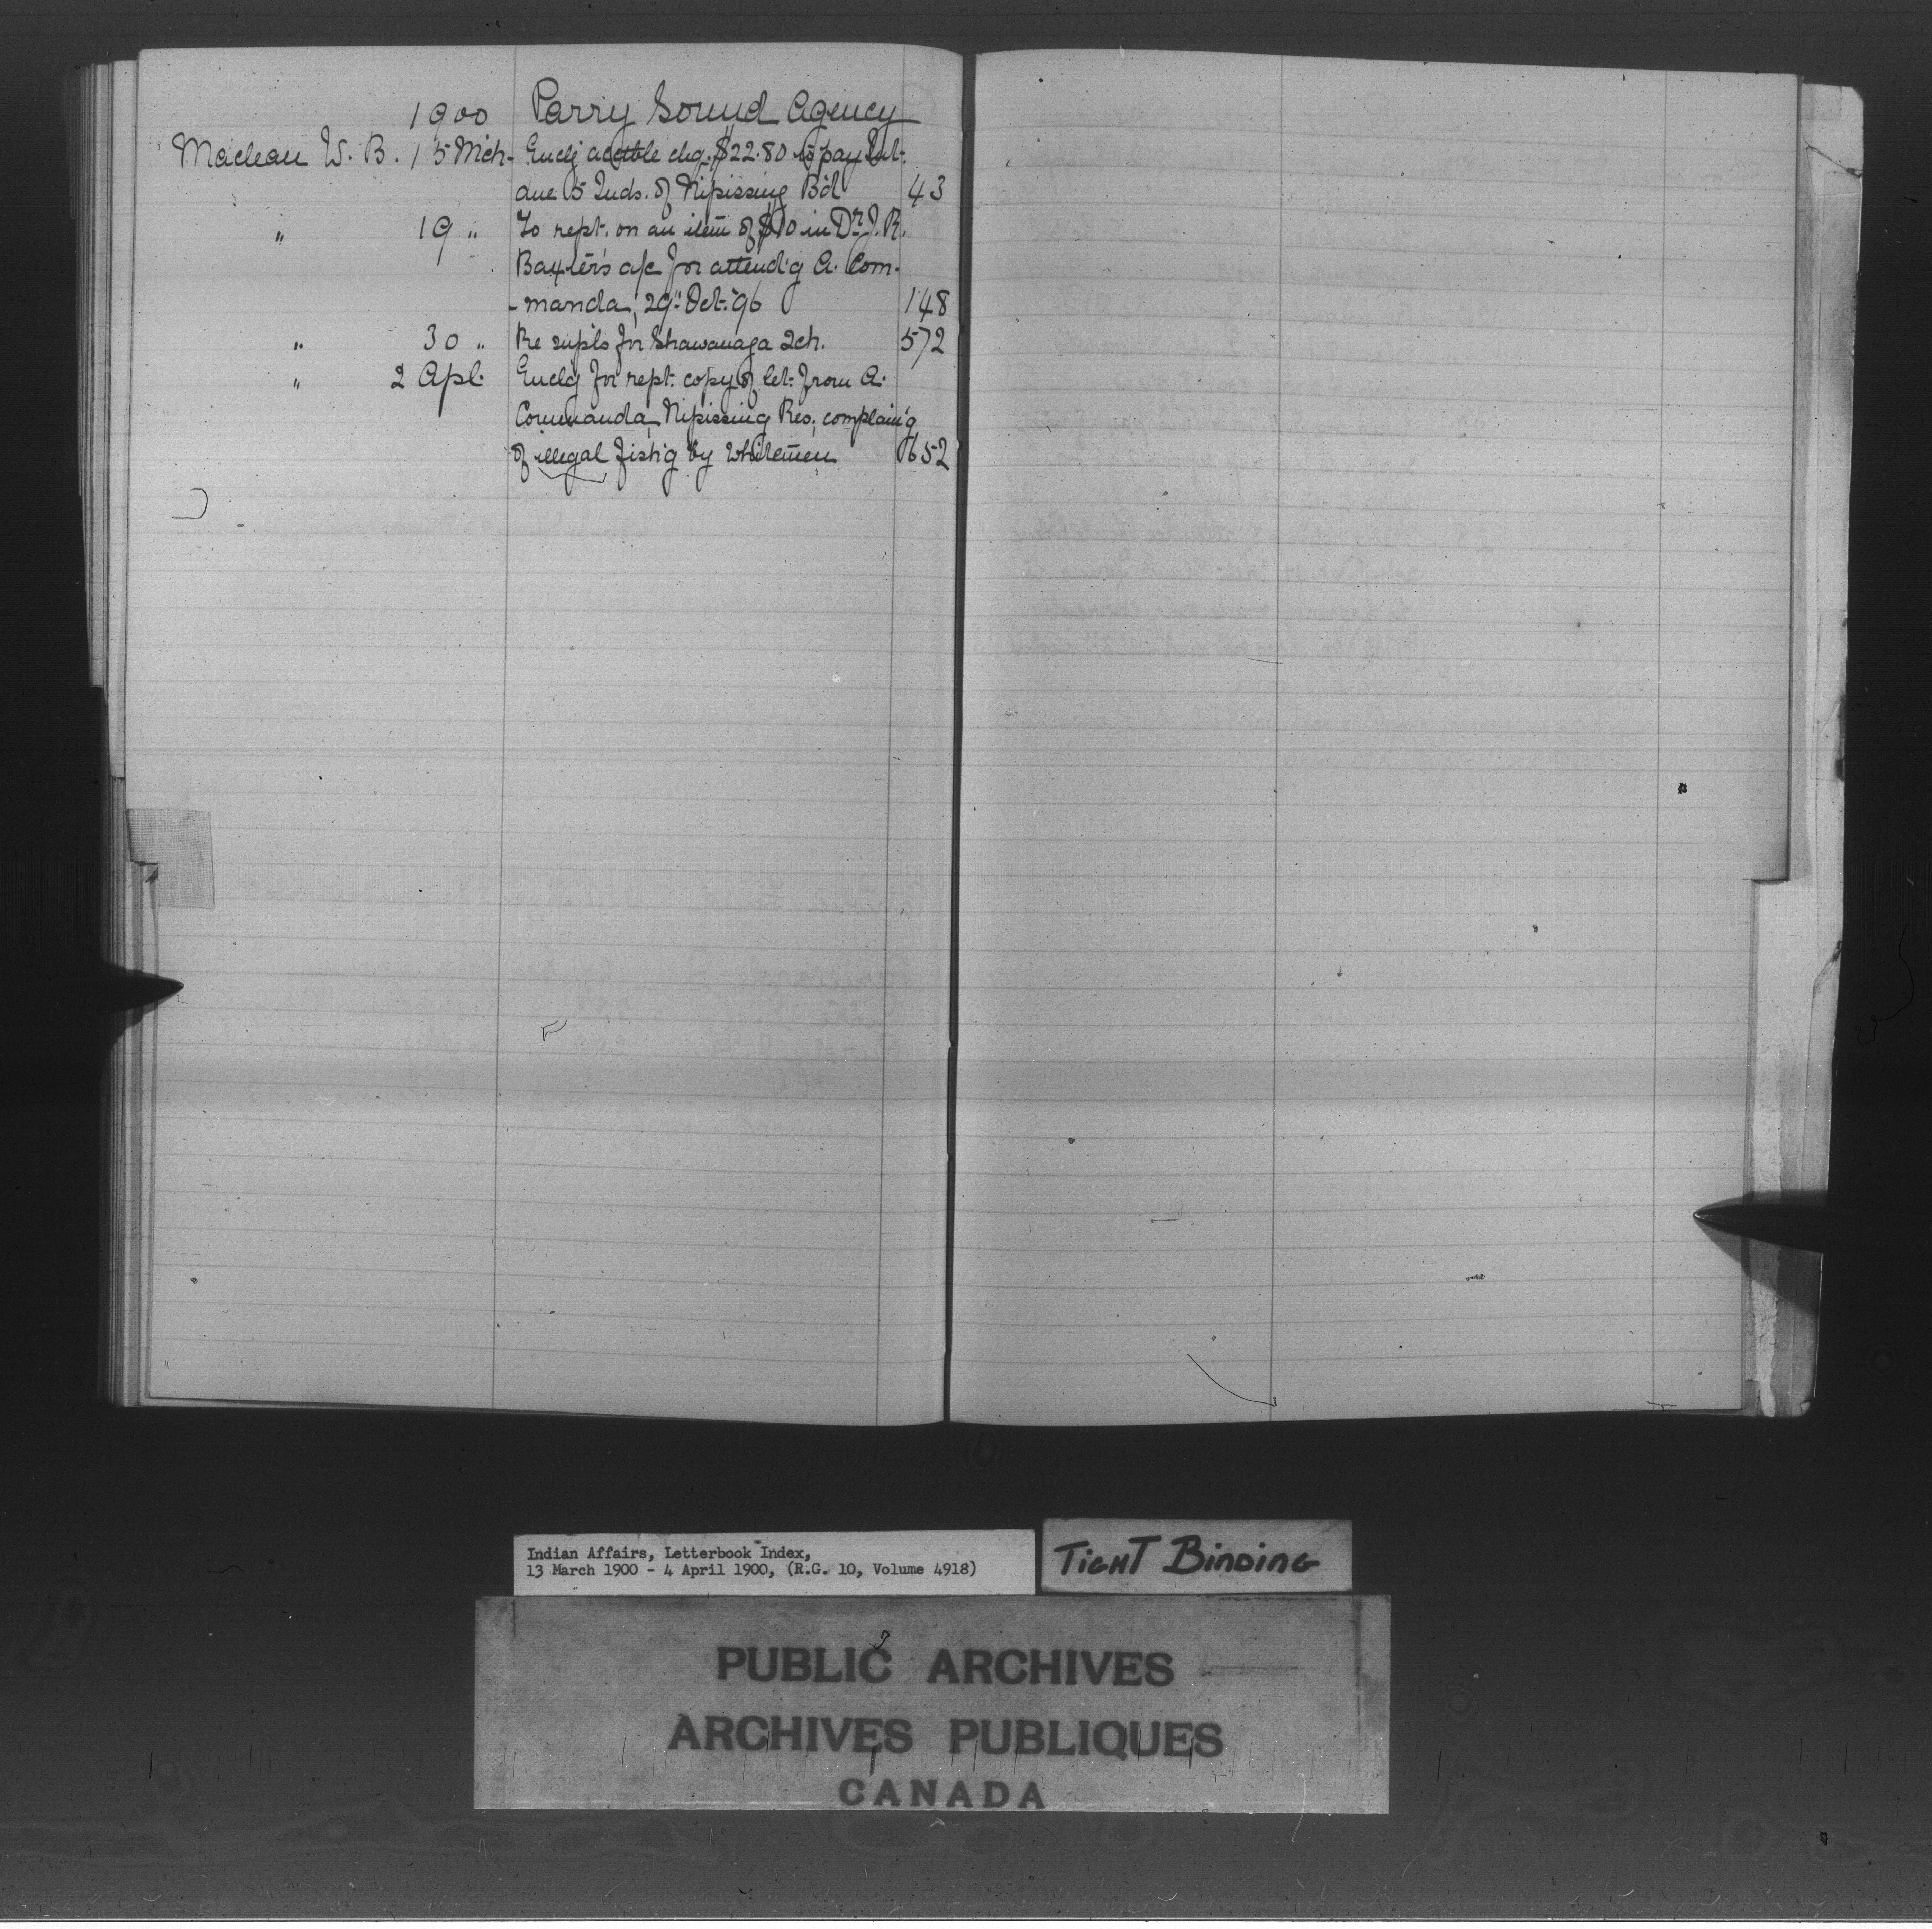 1900 Parry Sound Agency
Maclean W. B. 15 Mch- Enclg acctble chq. $22.80 to pay Int.
due 5 Inds. of Nipissing Bd 43
" 19 " To rept. on an item of $10 in Dr. J. R.
Baxter's a/c for attend'g A. Com-
-manda, 29" Oct. '96 148
" 30 " Re supls for Shawanaga Sch. 572
" 2 Apl. Enclg for rept. copy of let. from A.
Commanda, Nipissing Res, complain'g
of illegal fish'g by Whitemen 652
Indian Affairs, Letterbook Index,
13 March 1900 - 4 April 1900, (R.G. 10, Volume 4918)
TIGHT BINDING
PUBLIC ARCHIVES
ARCHIVES PUBLIQUES
CANADA